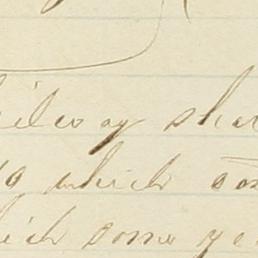 ilway shar
which con
ich some ye